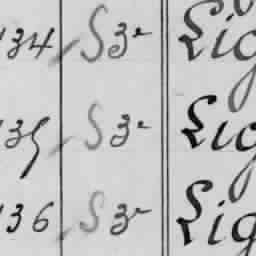 134 S 3e Lig
135 S 3e Lig
136 S 3e Lig